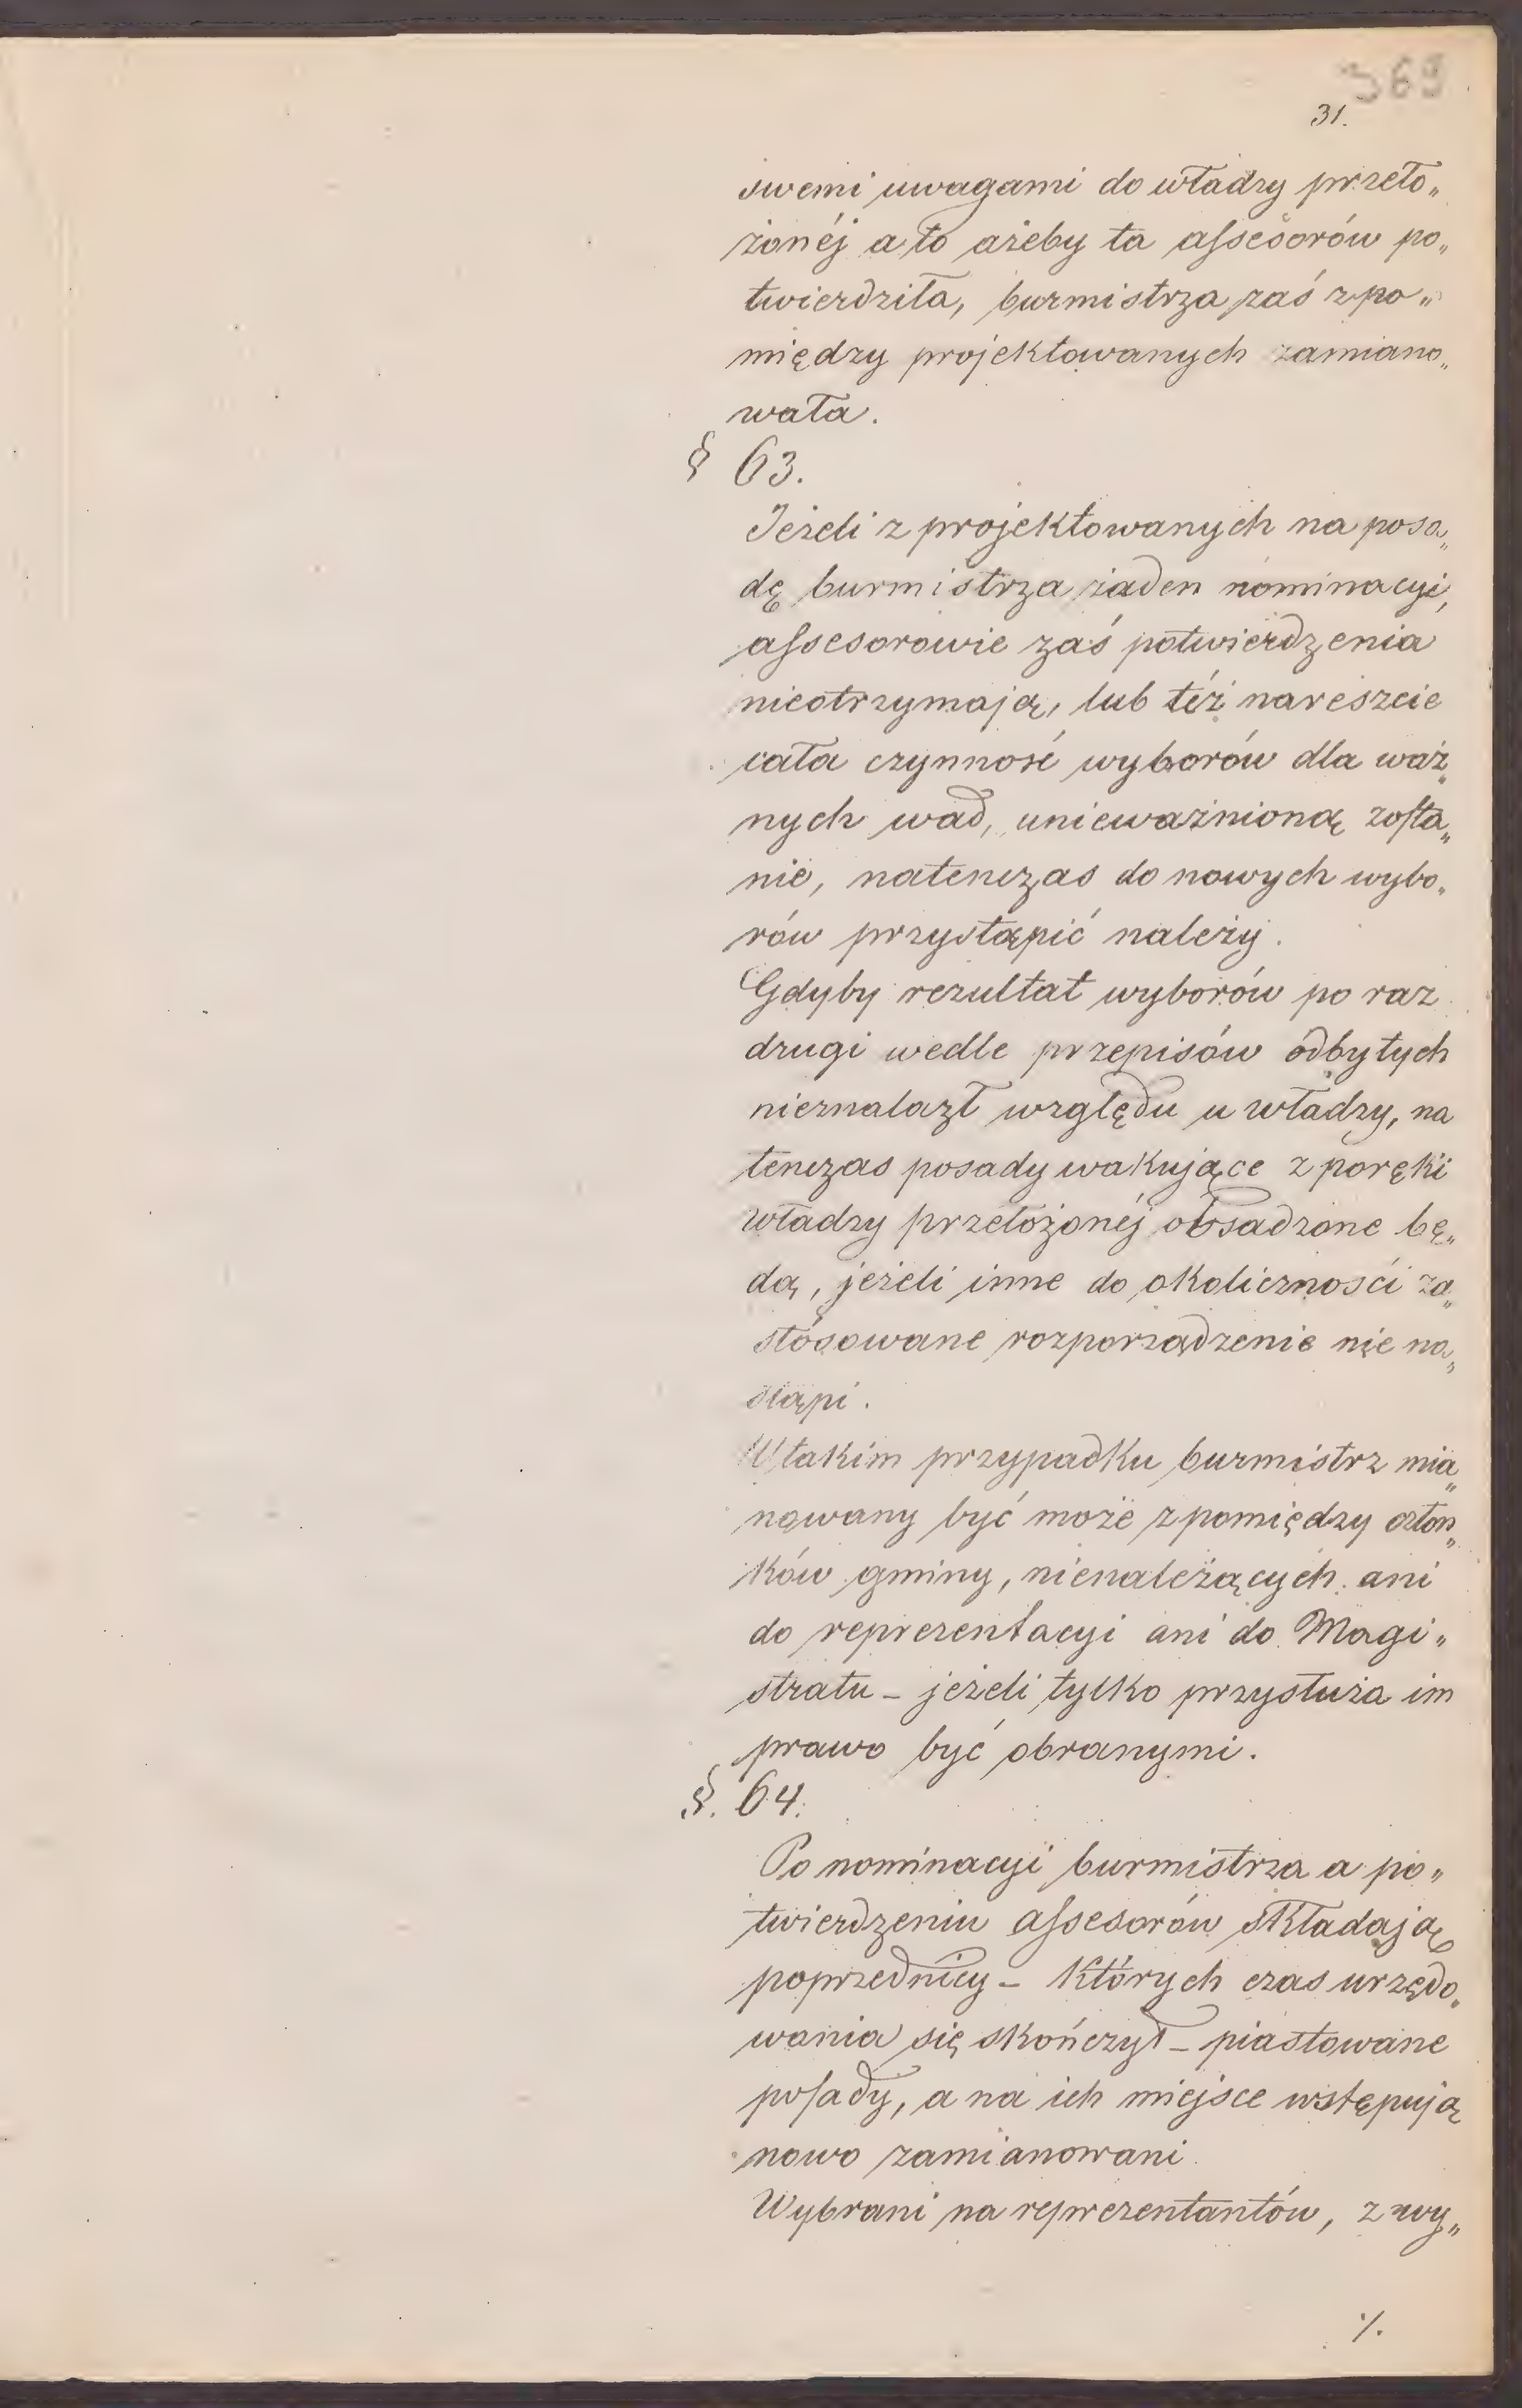 369
31.
swemi uwagami do władzy przeło„
żonéj a to ażeby ta assesorów po„
twierdziła, burmistrza zaś z po„
między projektowanych zamiano„
wała.
§ 63.
Jeżeli z projektowanych na posa„
dę burmistrza żaden nominacyi,
assesorowie zaś potwierdzenia
nieotrzymają, lub téż nareszcie
cała czynność wyborów dla waż„
nych wad, unieważnioną zosta„
nie, natenczas do nowych wybo„
rów przystąpić należy.
Gdyby rezultat wyborów po raz
drugi wedle przepisów odbytych
nieznalazł względu u władzy, na
tenczas posady wakujące z poręki
władzy przełożonéj obsadzone bę„
dą, jeżeli inne do okoliczności za„
stósowane rozporządzenie nie na„
stąpi.
W takim przypadku burmistrz mia„
nowany być może z pomiędzy człon„
ków gminy, nienależących ani
do reprezentacyi ani do Magi„
stratu – jeżeli tylko przysłuża im
prawo być obranymi.
§. 64.
Po nominacyi burmistrza a po„
twierdzeniu assesorów składają
poprzednicy – których czas urzędo„
wania się skończył – piastowane
posady, a na ich miejsce wstępują
nowo zamianowani.
Wybrani na reprezentantów, z wy„
./.